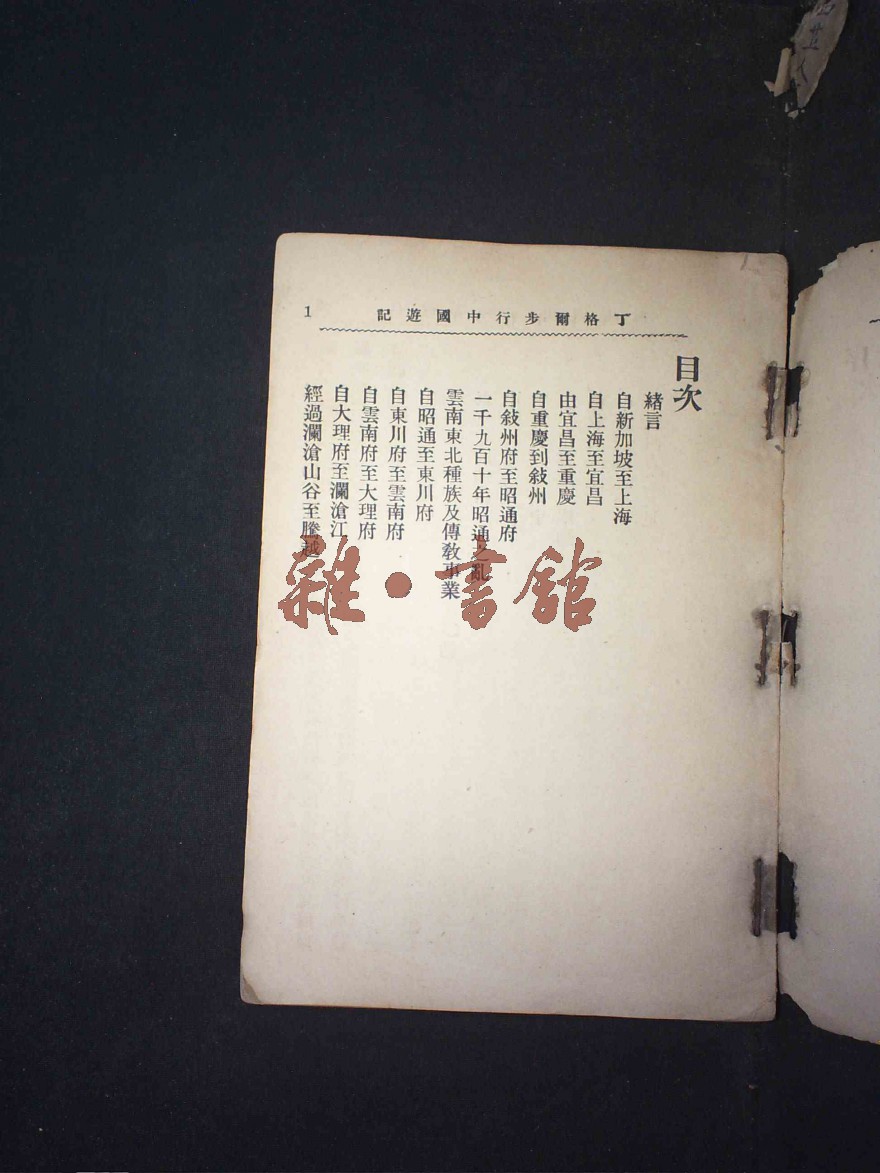 丁格爾步行中國遊記
1
目次
緒言
自新加坡至上海
自上海至宜昌
由宜昌至重慶
自重慶到敍州
自敍州府至昭通府
一千九百十年昭通之亂
雲南東北種族及傳敎事業
自昭通至東川府
自東川府至雲南府
自雲南府至大理府
自大理府至瀾滄江
經過瀾滄山谷至騰越
雜·書館